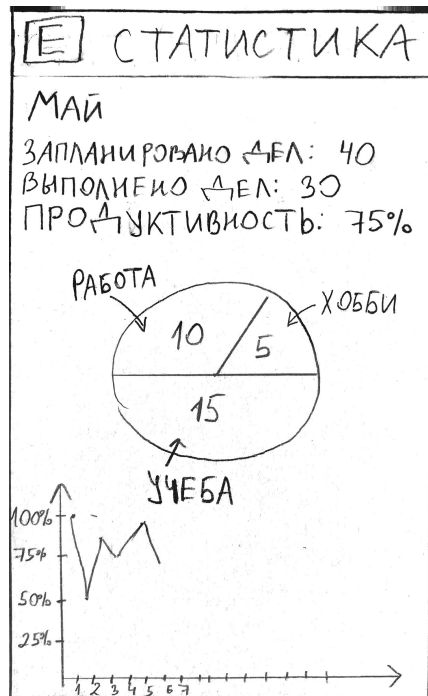 E СТАТИСТИКА
МАЙ
ЗАПЛАНИРОВАНО ДЕЛ: 40
ВЫПОЛНЕНО ДЕЛ: 30
ПРОДУКТИВНОСТЬ: 75%
РАБОТА
ХОББИ
10
5
15
УЧЕБА
100%
75%
50%
25%
1 2 3 4 5 6 7